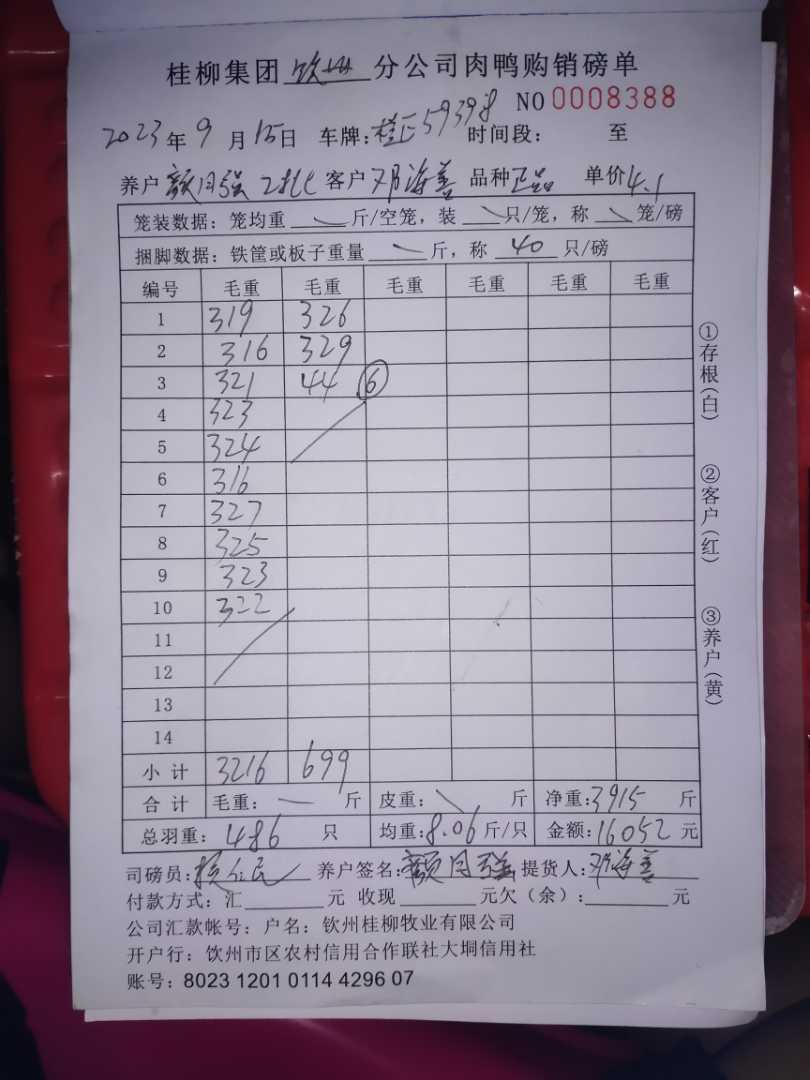 桂柳集团 钦州 分公司肉鸭购销磅单
NO 0008388
2023年9月15日 车牌:桂 59398 时间段: 至
养户 颜月强 2批 客户 邓海善 品种 正品 单价 4.1
笼装数据:笼均重 斤/空笼,装 只/笼,称 笼/磅
捆脚数据:铁筐或板子重量 斤,称 40 只/磅
编号 毛重 毛重 毛重 毛重 毛重 毛重
1 319 326
2 316 329
3 321 44 ⑥
4 323
5 324
6 316
7 327
8 325
9 323
10 322
11
12
13
14
小计 3216 699
合计 毛重: 斤 皮重: 斤 净重:3915 斤
总羽重:486 只 均重:8.06斤/只 金额:16052元
司磅员: 养户签名:颜月强 提货人:邓海善
付款方式:汇 元 收现 元欠(余): 元
公司汇款帐号:户名:钦州桂柳牧业有限公司
开户行:钦州市区农村信用合作联社大垌信用社
账号:8023 1201 0114 4296 07
①存根(白)
②客户(红)
③养户(黄)